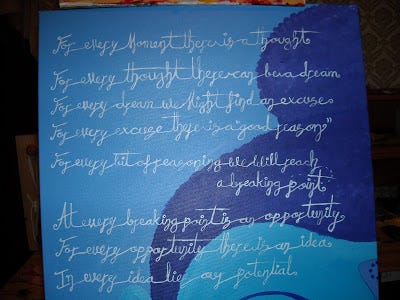 For every Moment there is a thought
For every thought there can be a dream
For every dream we Might find an excuse
For every excuse there is a "good reason"
For every bit of reasoning We Will reach
a breaking point
At every breaking point is an opportunity
For every opportunity there is an idea
In every idea lies our potential